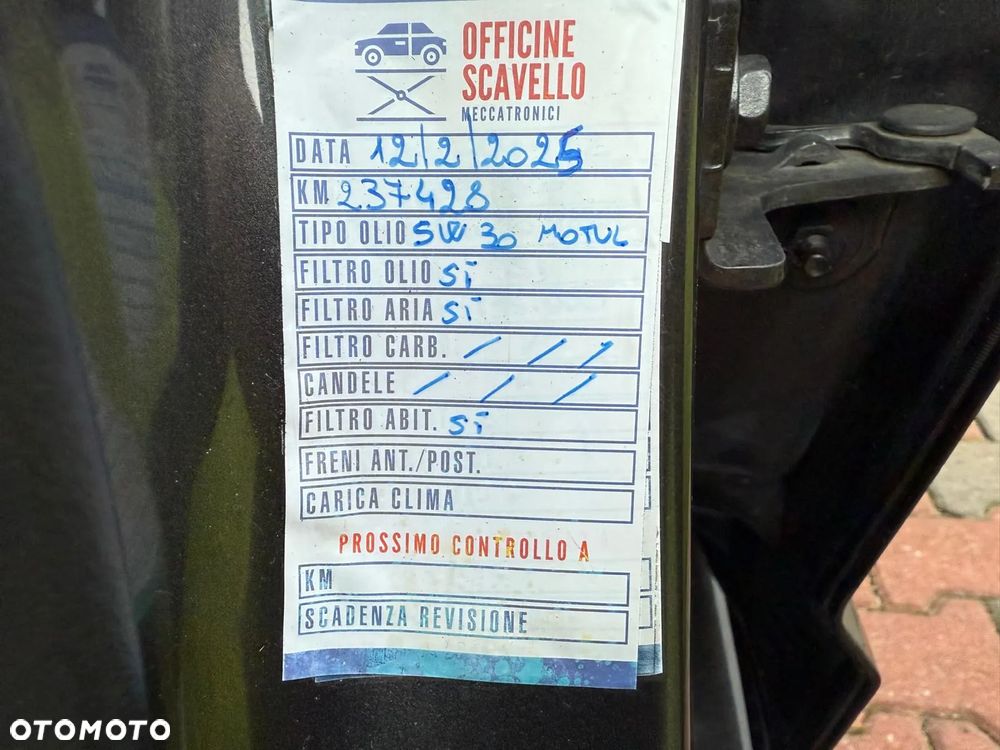 OFFICINE
SCAVELLO
MECCATRONICI
DATA 12/2/2025
KM 237428
TIPO OLIO 5W 30 MOTUL
FILTRO OLIO Sì
FILTRO ARIA Sì
FILTRO CARB. / / /
CANDELE / / /
FILTRO ABIT. Sì
FRENI ANT./POST.
CARICA CLIMA
PROSSIMO CONTROLLO A
KM
SCADENZA REVISIONE
OTOMOTO